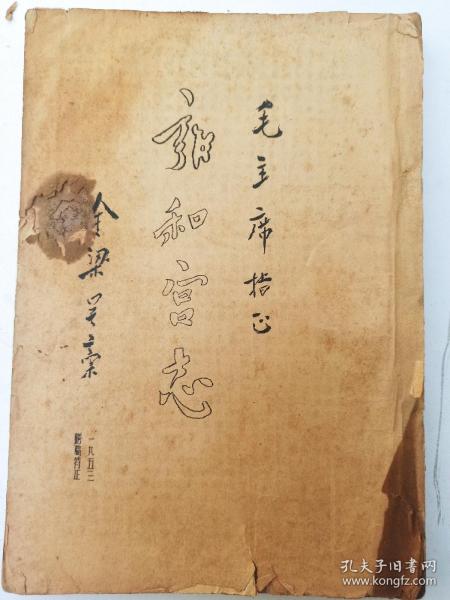 毛主席指正
雍和宫志
金梁呈稿
一九五三
謄稿待正
孔夫子旧书网
www.kongfz.com